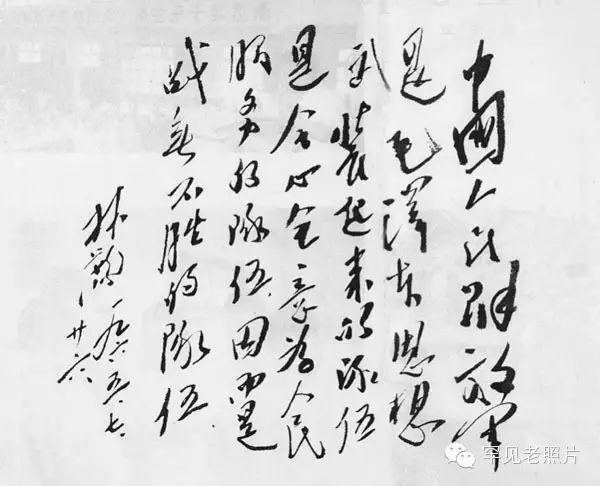 中國人民解放军
是毛澤东思想
武裝起来的隊伍
是全心全意为人民
服务的隊伍,因而是
战无不胜的隊伍.
林彪 一九六五.七.
廿六
罕见老照片